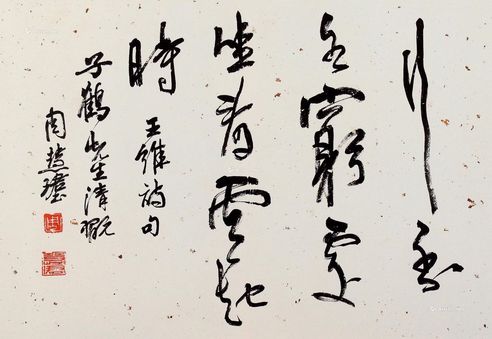 行到
水窮處
坐看雲起
時
王維詩句
子鶴先生清
周慧珺